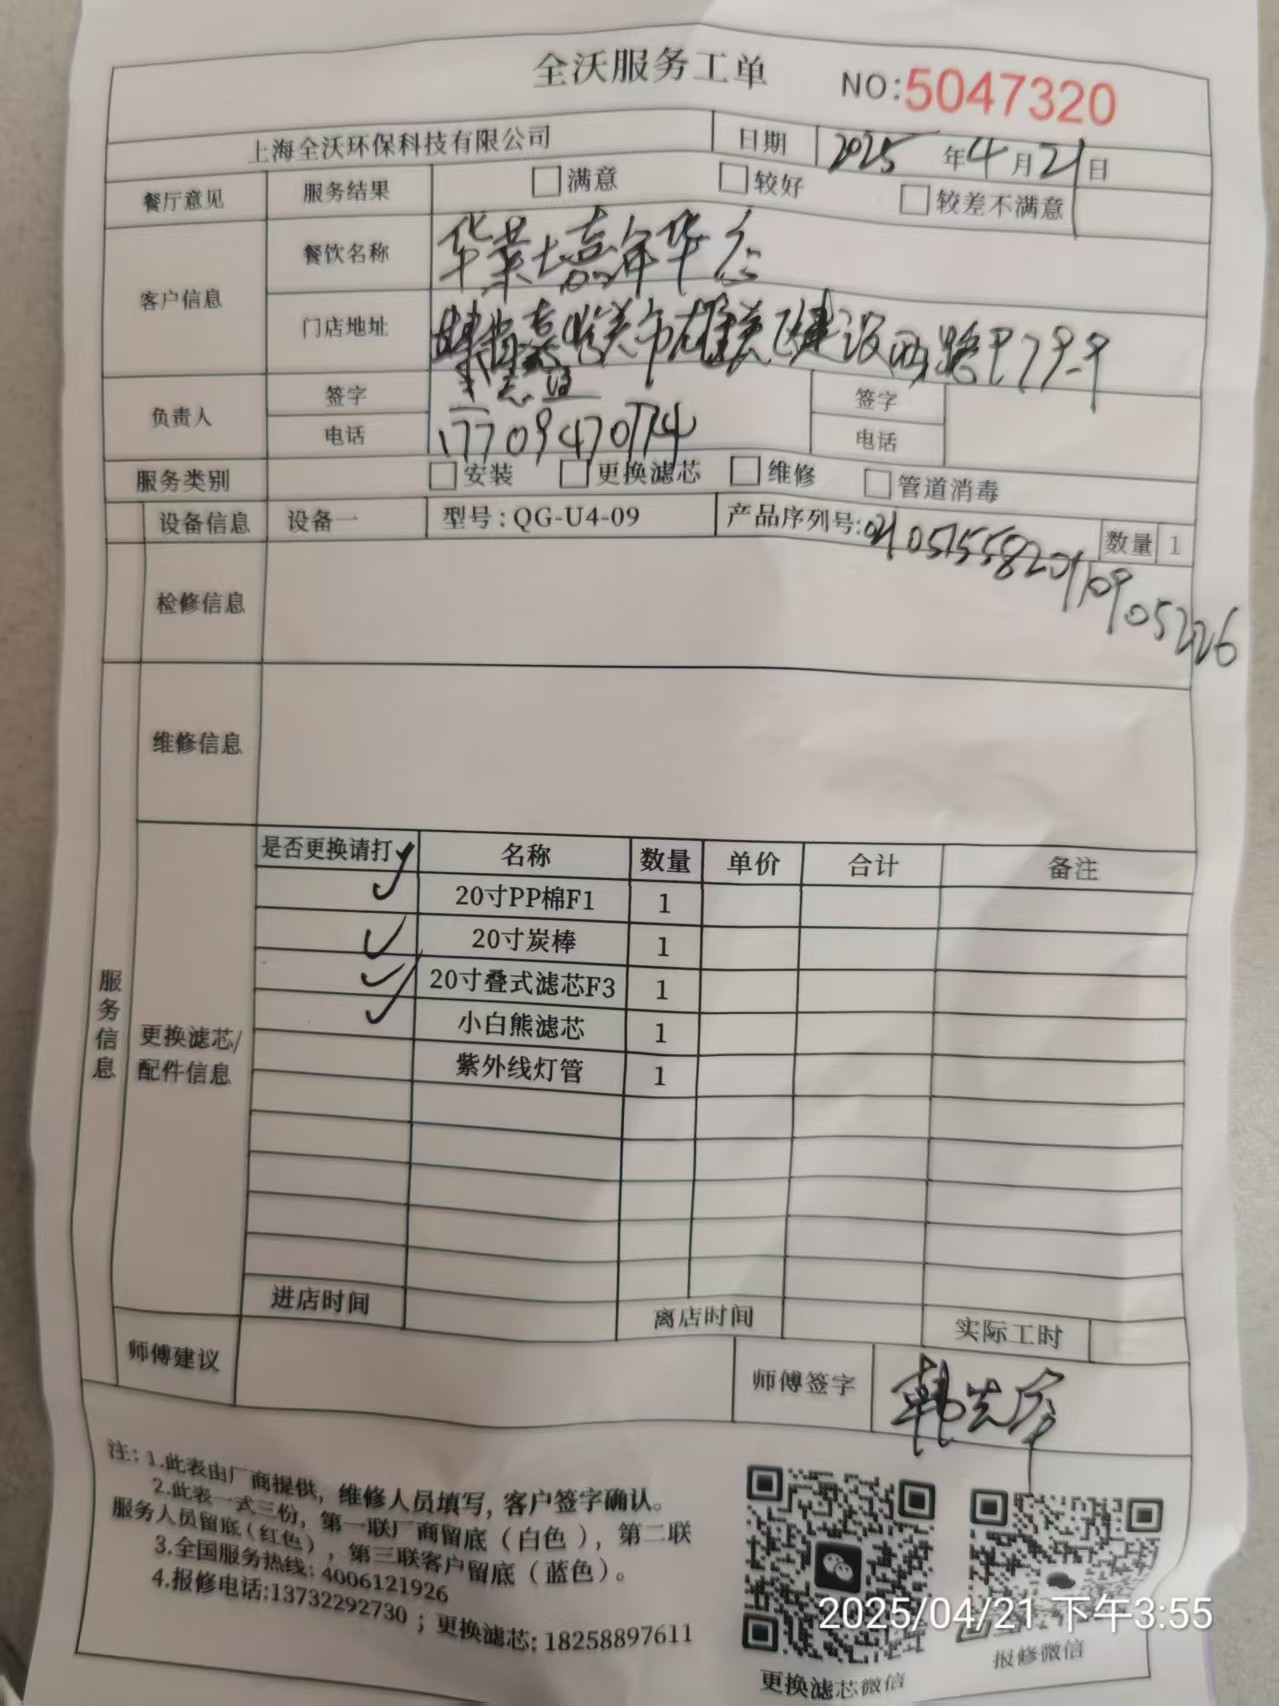 全沃服务工单 NO:5047320
上海全沃环保科技有限公司 日期 2025年4月21日
餐厅意见 服务结果 满意 较好 较差不满意
客户信息 餐饮名称 华莱士嘉年华店
门店地址 甘肃嘉峪关市雄关区建设西路甲79号
负责人 签字 签字
电话 17709470774 电话
服务类别 安装 更换滤芯 维修 管道消毒
设备信息 设备一 型号:QG-U4-09 产品序列号: 数量 1
检修信息
维修信息
服务信息
更换滤芯/配件信息
是否更换请打✓ 名称 数量 单价 合计 备注
✓ 20寸PP棉F1 1
✓ 20寸炭棒 1
✓ 20寸叠式滤芯F3 1
✓ 小白熊滤芯 1
紫外线灯管 1
进店时间 离店时间 实际工时
师傅建议 师傅签字
注:1.此表由厂商提供,维修人员填写,客户签字确认。
2.此表一式三份,第一联厂商留底(白色),第二联
服务人员留底(红色),第三联客户留底(蓝色)。
3.全国服务热线:4006121926
4.报修电话:13732292730;更换滤芯:18258897611
更换滤芯微信 报修微信
2025/04/21 下午3:55